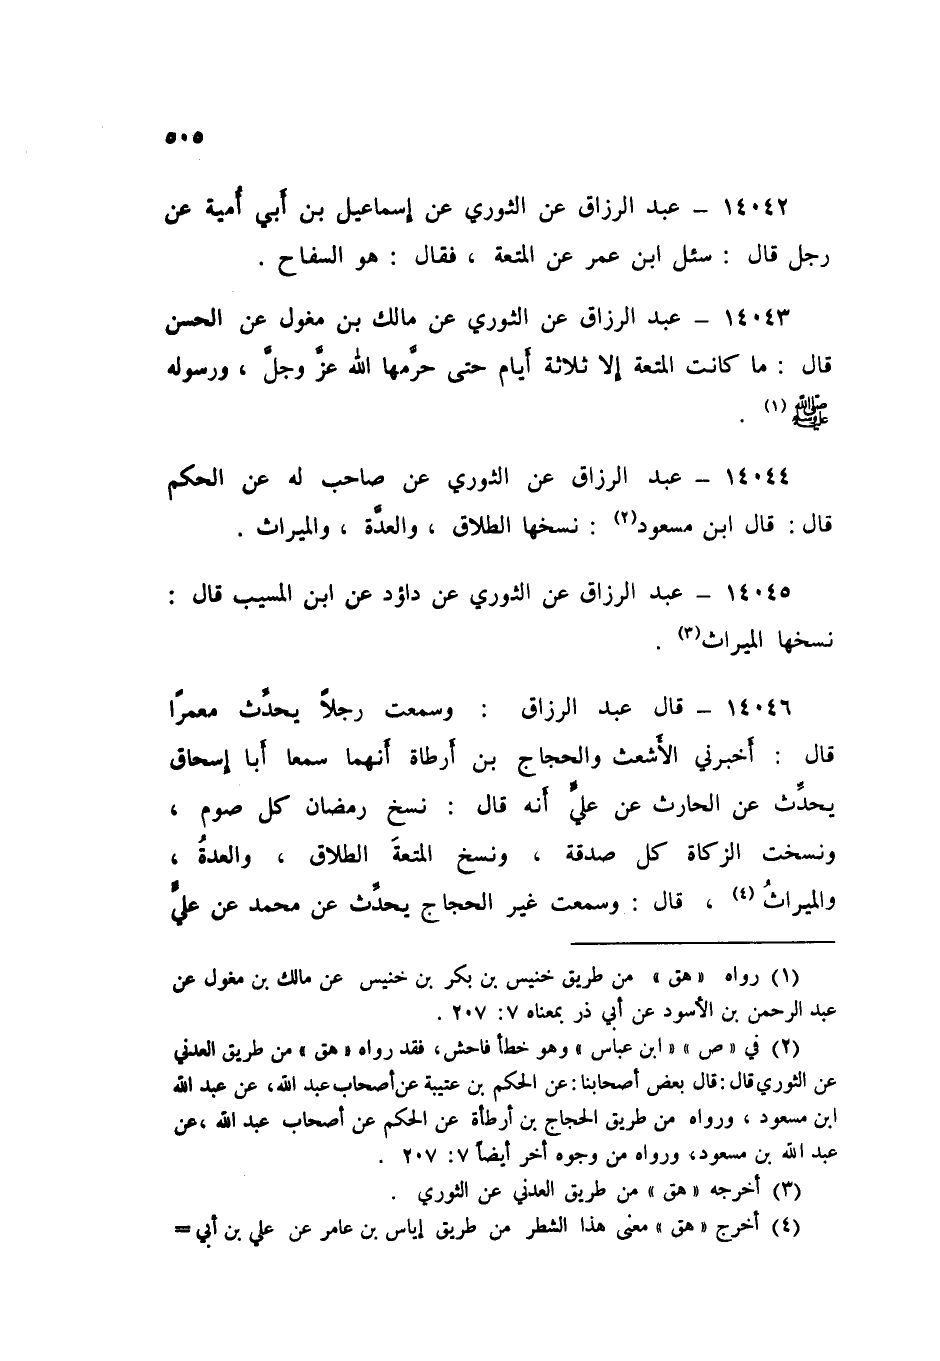 ٥٠٥
١٤٠٤٢ – عبد الرزاق عن الثوري عن إسماعيل بن أَبي أُمية عن
رجل قال : سئل ابن عمر عن المتعة ، فقال : هو السفاح .
١٤٠٤٣ – عبد الرزاق عن الثوري عن مالك بن مغول عن الحسن
قال : ما كانت المتعة إلا ثلاثة أَيام حتى حرَّمها الله عزَّ وجلَّ ، ورسوله
ﷺ (١) .
١٤٠٤٤ – عبد الرزاق عن الثوري عن صاحب له عن الحكم
قال : قال ابن مسعود(٢) : نسخها الطلاق ، والعدَّة ، والميراث .
١٤٠٤٥ – عبد الرزاق عن الثوري عن داؤد عن ابن المسيب قال :
نسخها الميراث(٣) .
١٤٠٤٦ – قال عبد الرزاق : وسمعت رجلاً يحدِّث معمرًا
قال : أَخبرني الأَشعث والحجاج بن أَرطاة أَنهما سمعا أَبا إسحاق
يحدِّث عن الحارث عن عليٍّ أَنه قال : نسخ رمضان كل صوم ،
ونسخت الزكاة كل صدقة ، ونسخ المتعةَ الطلاق ، والعدةُ ،
والميراثُ (٤) ، قال : وسمعت غير الحجاج يحدِّث عن محمد عن عليٍّ
(١) رواه « هق » من طريق خنيس بن بكر بن خنيس عن مالك بن مغول عن
عبد الرحمن بن الأسود عن أبي ذر بمعناه ٧: ٢٠٧ .
(٢) في « ص » « ابن عباس » وهو خطأ فاحش، فقد رواه « هق » من طريق العدني
عن الثوري قال : قال بعض أصحابنا : عن الحكم بن عتيبة عن أصحاب عبد الله، عن عبد الله
ابن مسعود ، ورواه من طريق الحجاج بن أرطأة عن الحكم عن أصحاب عبد الله ،عن
عبد الله بن مسعود، ورواه من وجوه أخر أيضاً ٧: ٢٠٧ .
(٣) أخرجه « هق » من طريق العدني عن الثوري .
(٤) أخرج « هق » معنى هذا الشطر من طريق إياس بن عامر عن علي بن أبي =